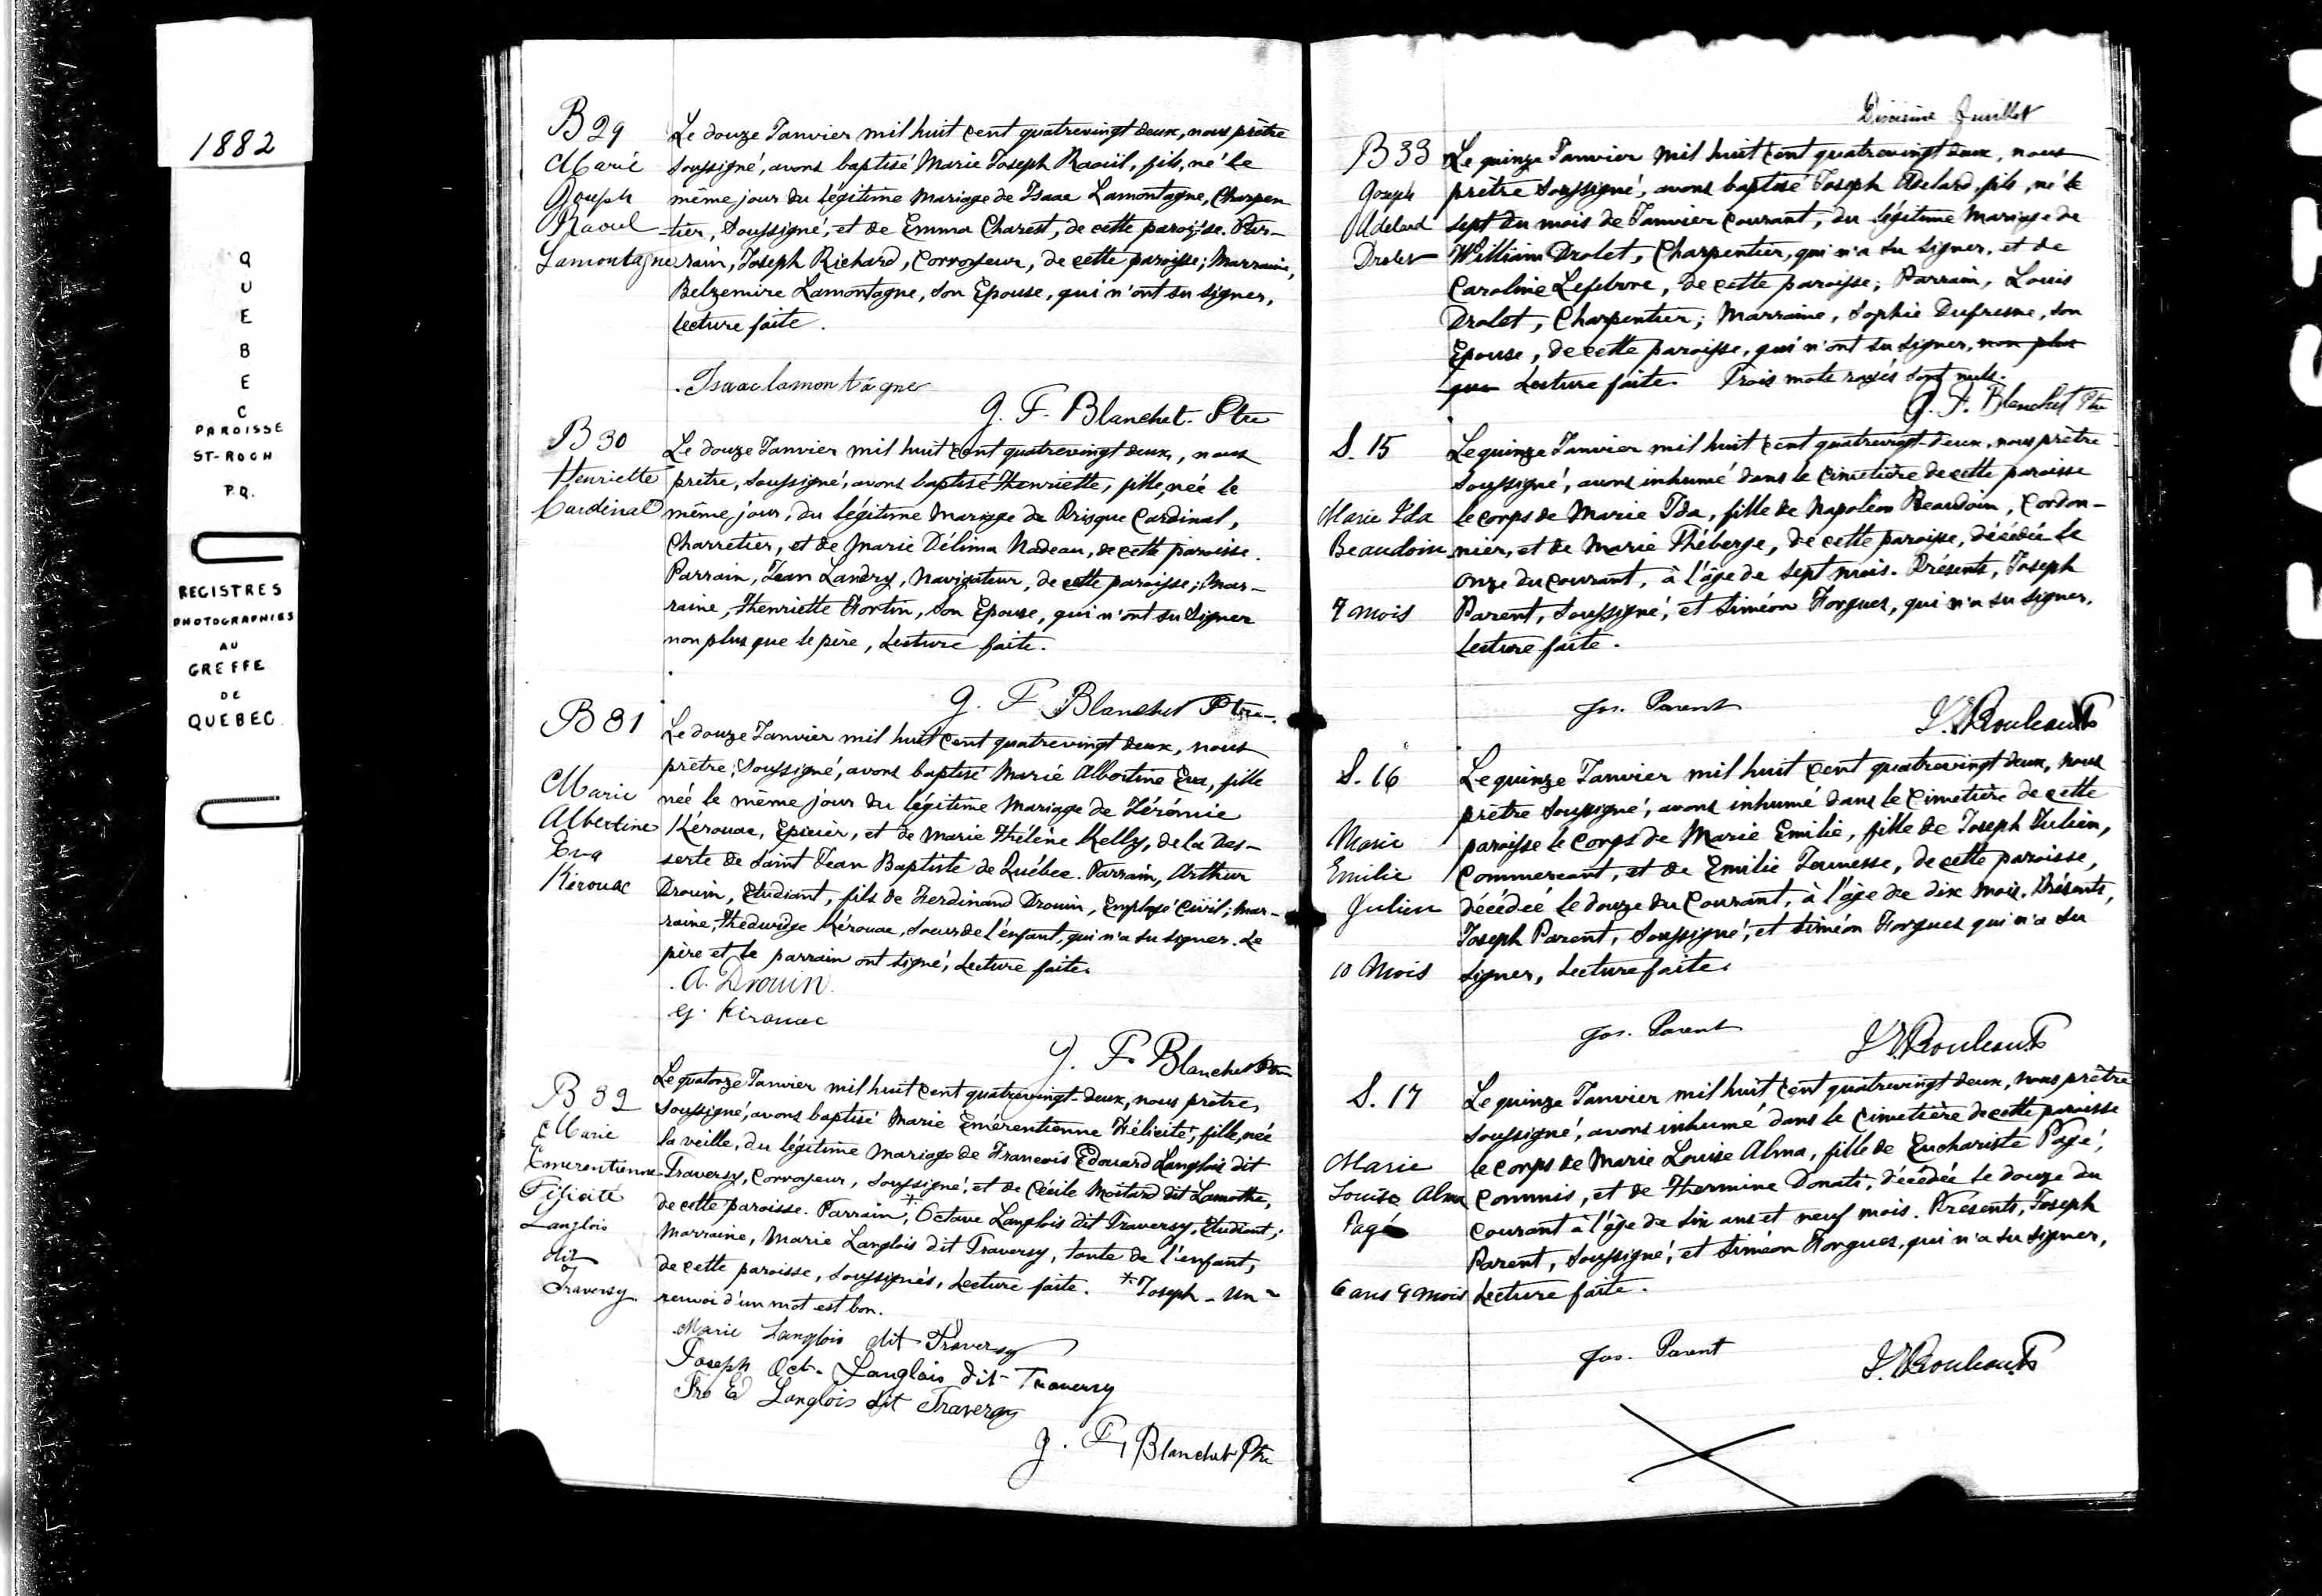 1882
Q
U
E
B
E
C
PAROISSE
ST-ROCH
P.Q.
REGISTRES
PHOTOGRAPHIES
AU
GREFFE
DE
QUEBEC.
B 29
Marie
Joseph
Raoul
Lamontagne
Le douze Janvier mil huit cent quatrevingt deux, nous prêtre
soussigné, avons baptisé Marie Joseph Raoül, fils, né le
même jour du légitime mariage de Isaac Lamontagne, Charpen
-tier, soussigné, et de Emma Charest, de cette paroisse. Par-
rain, Joseph Richard, Corroyeur, de cette paroisse; Marraine,
Belzemire Lamontagne, son Epouse, qui n'ont su signer,
lecture faite.
Isaac lamontagne
J. F. Blanchet Ptre
B 30
Henriette
Cardinal
Le douze Janvier mil huit cent quatrevingt deux, nous
prêtre, soussigné, avons baptisé Henriette, fille, née le
même jour, du légitime mariage de Prisque Cardinal,
Charretier, et de Marie Délima Nadeau, de cette paroisse.
Parrain, Jean Landry, Navigateur, de cette paroisse; Mar-
raine, Henriette Fortin, son Epouse, qui n'ont su signer
non plus que le père, lecture faite.
J. F. Blanchet Ptre
B 31
Marie
Albertine
Eva
Kérouac
Le douze Janvier mil huit cent quatrevingt deux, nous
prêtre, soussigné, avons baptisé Marie Albertine Eva, fille
née le même jour du légitime mariage de Jérémie
Kérouac, Epicier, et de Marie Hélène Kelly, de la des-
serte de Saint Jean Baptiste de Québec. Parrain, Arthur
Drouin, Etudiant, fils de Ferdinand Drouin, Employé Civil; Mar-
raine, Hedwidge Kérouac, soeur de l'enfant, qui n'a su signer. Le
père et le parrain ont signé, lecture faite.
A. Drouin
J. Kirouac
J. F. Blanchet Ptre
B 32
Marie
Emerentienne
Félicité
Langlois
dit
Traversy
Le quatorze Janvier mil huit cent quatrevingt-deux, nous prêtre,
soussigné, avons baptisé Marie Emérentienne Félicité, fille, née
la veille, du légitime mariage de Francois Edouard Langlois dit
Traversy, Corroyeur, soussigné, et de Cécile Moitard dit Lamothe,
de cette paroisse. Parrain,* Octave Langlois dit Traversy, Etudiant;
Marraine, Marie Langlois dit Traversy, tante de l'enfant,
de cette paroisse, soussignés, lecture faite. * Joseph - Un
renvoi d'un mot est bon.
Marie Langlois dit Traversy
Joseph Oct. Langlois dit Traversy
Fro Ed Langlois dit Traversy
J. F. Blanchet Ptre
Dixième Feuillet
B 33
Joseph
Adelard
Drolet
Le quinze Janvier mil huit cent quatrevingt deux, nous
prêtre soussigné, avons baptisé Joseph Adelard, fils, né le
sept du mois de Janvier courant, du légitime mariage de
William Drolet, Charpentier, qui n'a su signer, et de
Caroline Lefebvre, de cette paroisse; Parrain, Louis
Drolet, Charpentier; Marraine, Sophie Dufresne, son
Epouse, de cette paroisse, qui n'ont su signer, non plus
que lecture faite. Trois mots rayés sont nuls.
J. F. Blanchet Ptre
S. 15
Marie Ida
Beaudoin
7 mois
Le quinze Janvier mil huit cent quatrevingt-deux, nous prêtre
soussigné, avons inhumé dans le cimetière de cette paroisse
le corps de Marie Ida, fille de Napoléon Beaudoin, Cordon-
nier, et de Marie Théberge, de cette paroisse, décédée le
onze du courant, à l'âge de sept mois. Présents, Joseph
Parent, soussigné, et Siméon Forgues, qui n'a su signer,
lecture faite.
Jos. Parent
S. 16
Marie
Emilie
Julien
10 Mois
Le quinze Janvier mil huit cent quatrevingt deux, nous
prêtre soussigné, avons inhumé dans le cimetière de cette
paroisse le corps de Marie Emilie, fille de Joseph Julien,
Commercant, et de Emilie Jeunesse, de cette paroisse,
décédée le douze du courant, à l'âge de dix mois. Présents,
Joseph Parent, soussigné, et Siméon Forgues qui n'a su
signer, lecture faite.
Jos. Parent
S. 17
Marie
Louise Alma
Pagé
6 ans 9 mois
Le quinze Janvier mil huit cent quatrevingt deux, nous prêtre
soussigné, avons inhumé dans le cimetière de cette paroisse
le corps de Marie Louise Alma, fille de Euchariste Pagé,
Commis, et de Hermine Donati, décédée le douze du
courant à l'âge de six ans et neuf mois. Présents, Joseph
Parent, soussigné, et Siméon Forgues, qui n'a su signer,
lecture faite.
Jos. Parent